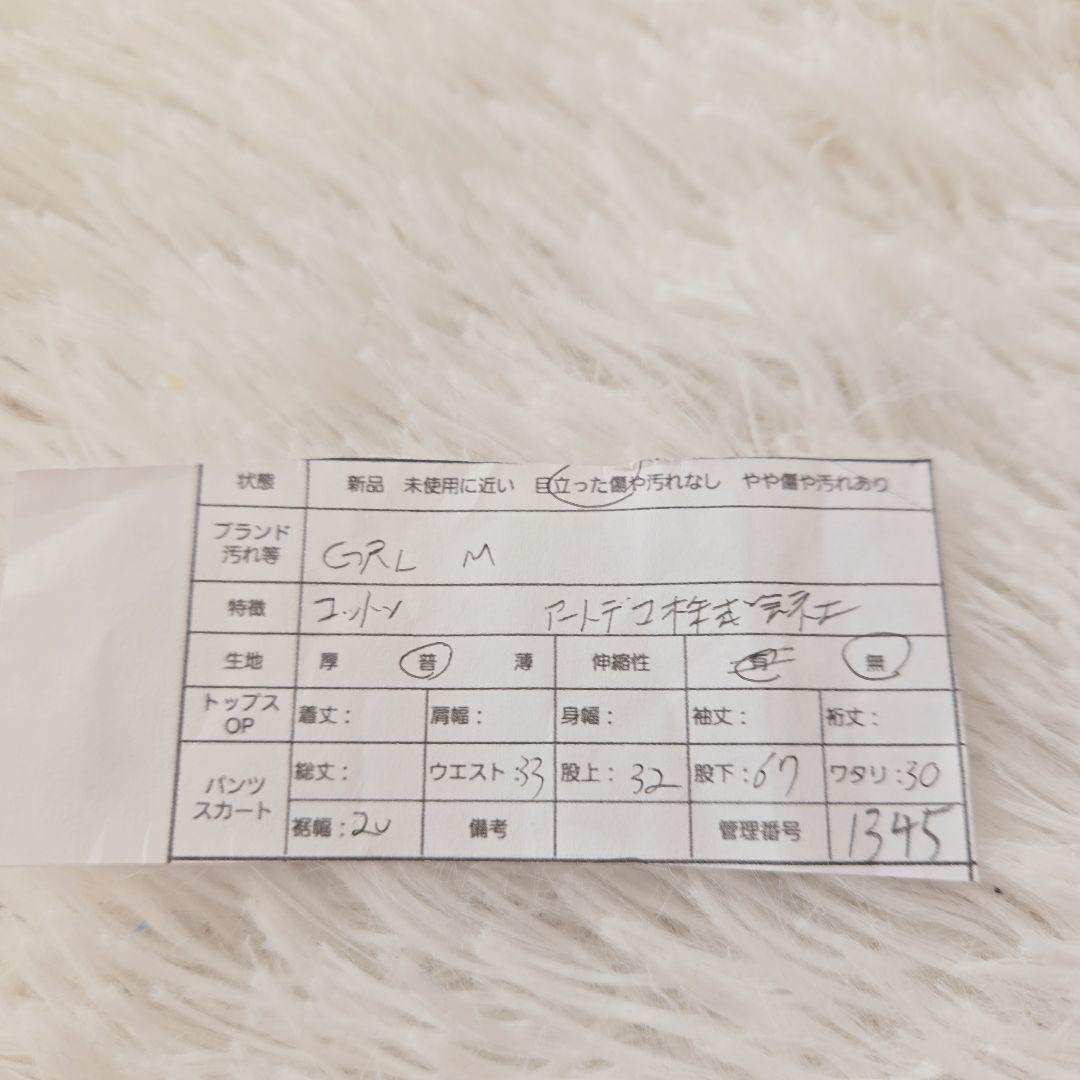 状態 新品 未使用に近い 目立った傷や汚れなし やや傷や汚れあり
ブランド
汚れ等 GRL M
特徴 コットン アートデコ株式会社
生地 厚 普 薄 伸縮性 有 無
トップス
OP 着丈: 肩幅: 身幅: 袖丈: 裄丈:
パンツ
スカート 総丈: ウエスト:33 股上:32 股下:67 ワタリ:30
裾幅:20 備考 管理番号 1345